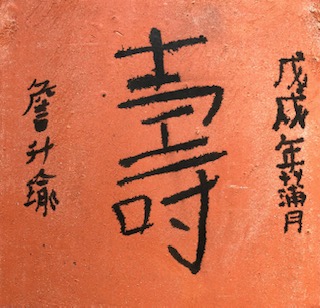 戊戌年蒲月
壽
詹升